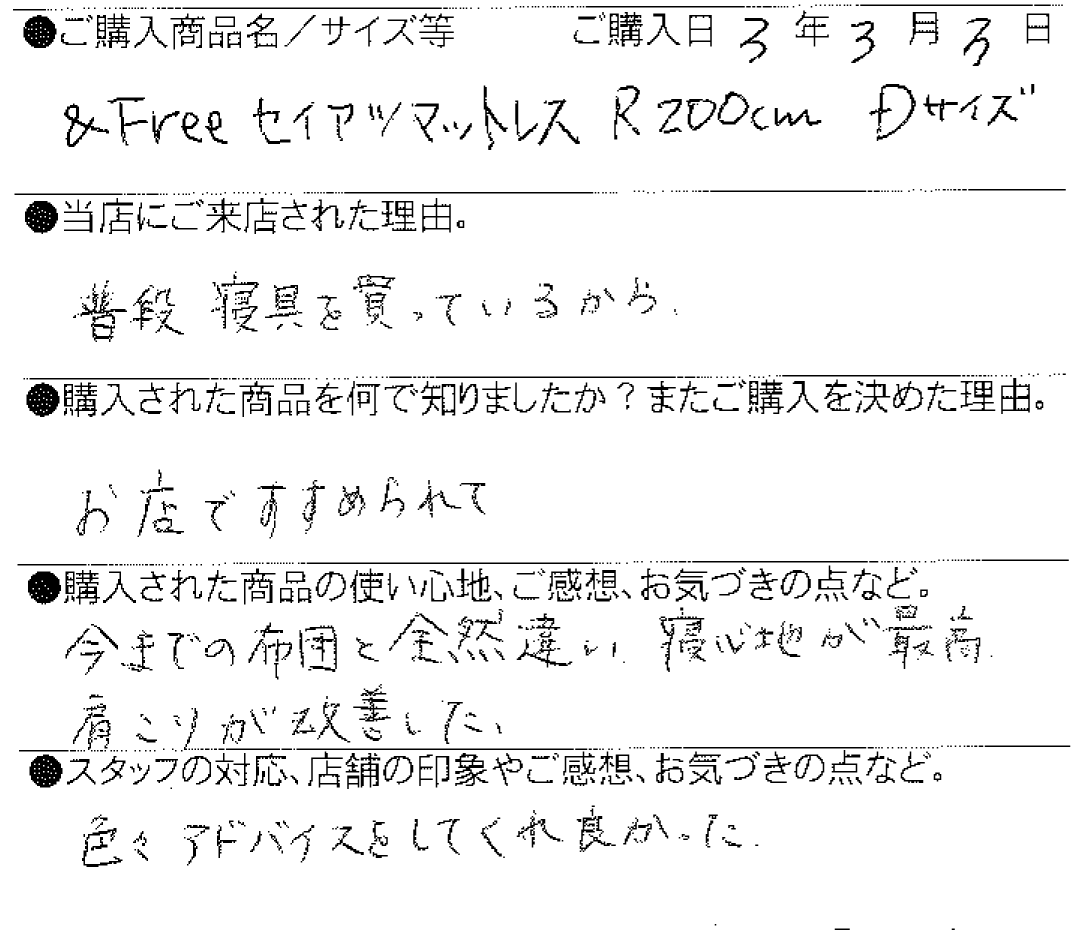 ●ご購入商品名／サイズ等 ご購入日 3 年 3 月 3 日
&Free セイアツマットレス R 200cm Dサイズ
●当店にご来店された理由。
普段 寝具を買っているから.
●購入された商品を何で知りましたか？またご購入を決めた理由。
お店ですすめられて
●購入された商品の使い心地、ご感想、お気づきの点など。
今までの布団と全然違い. 寝心地が最高.
肩こりが改善した、
●スタッフの対応、店舗の印象やご感想、お気づきの点など。
色々アドバイスをしてくれ良かった.